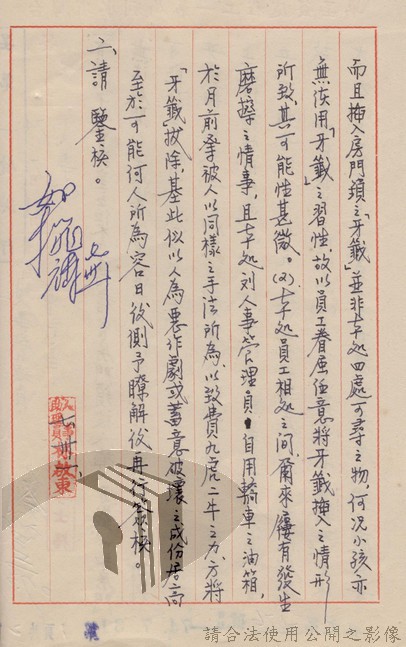 而且插入房門鎖之「牙籤」並非本処四處可尋之物,何況小孩亦
無使用「牙籤」之習性,故以員工眷屈任意將牙籤插入之情形
所致,其可能性甚微。(2)本処員工相処之間,爾來屢有發生
磨擦之情事,且本処刘人事管理員自用轎車之油箱,
於月前曾被人以同樣之手法所為,以致費九虎二牛之力,方將
「牙籤」拔除,基此似以人為惡作劇或蓄意破壞之成份居高
至於可能何人所為容日後側予瞭解後再行簽核。
二、請 鑒核。
啟東
請合法使用公開之影像